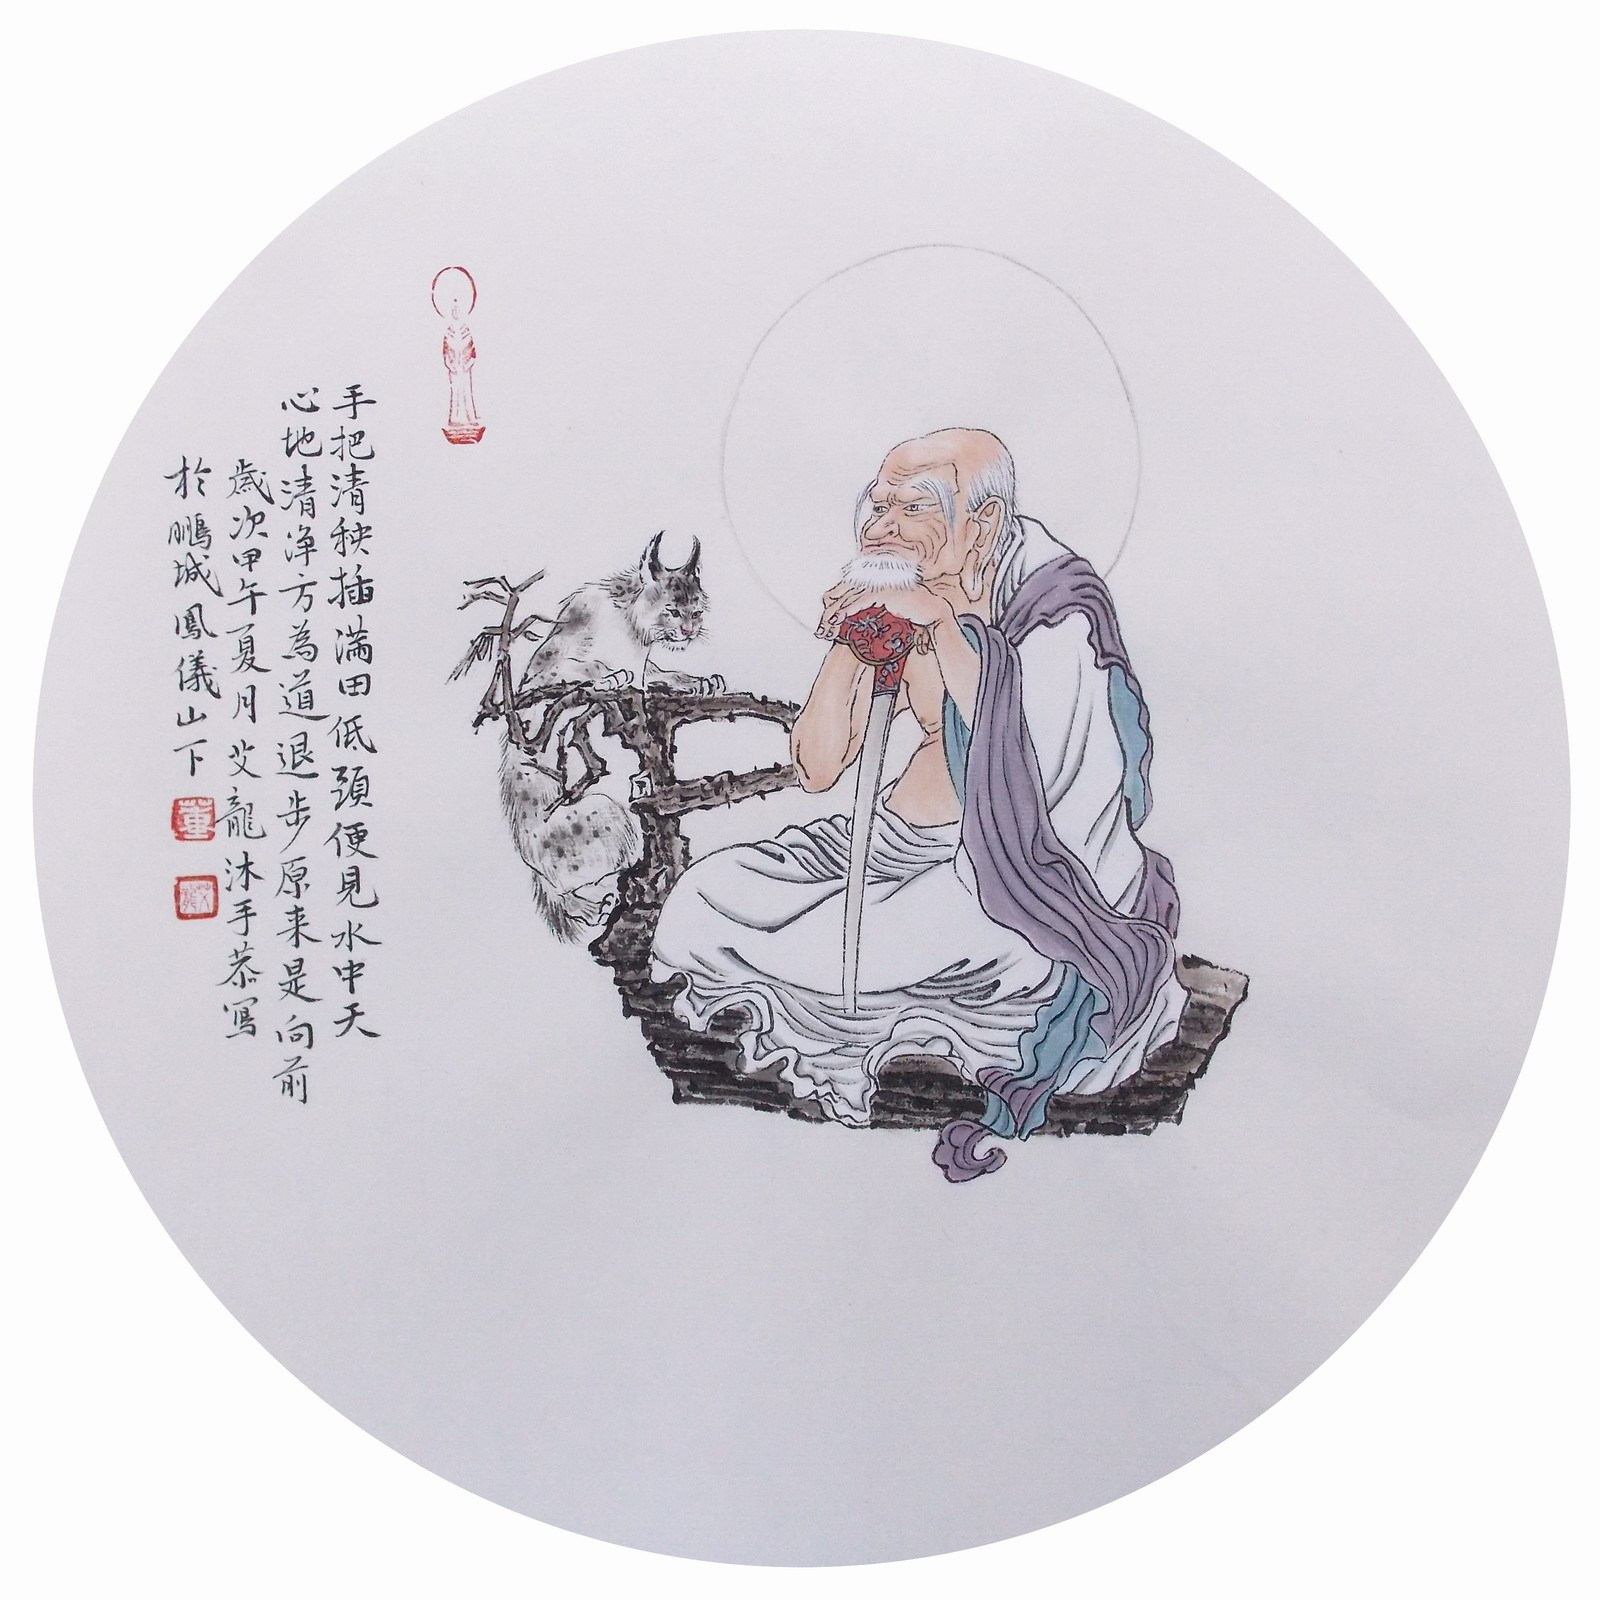 手把清秧插滿田低頭便見水中天
心地清淨方為道退步原来是向前
歲次甲午夏月艾龍沐手恭寫
於鵬城鳳儀山下
董
艾龍